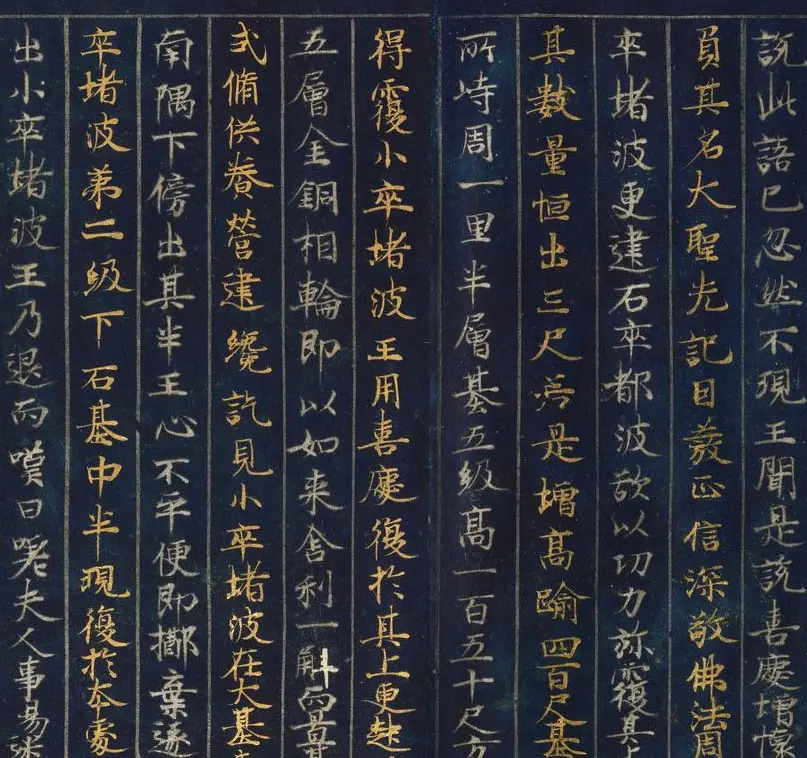 說此語已忽然不現王聞是說喜慶增懷
負其名大聖先記曰發正信深敬佛法周
卒堵波更建石卒都波欲以功力弥覆其上
其數量恒出三尺若是增高踰四百尺基
所峙周一里半層基五級高一百五十尺方
得覆小卒堵波王用喜慶復於其上更起
五層金銅相輪即以如来舍利一斛而置其
式脩供養營建纔訖見小卒堵波在大基
南隅下傍出其半王心不平便即擲棄遂
卒堵波第二級下石基中半現復於本處
出小卒堵波王乃退而嘆曰嗟夫人事易迷